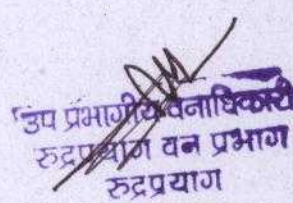 उप प्रभागीय वनाधिकारी
रुद्रप्रयाग वन प्रभाग
रुद्रप्रयाग